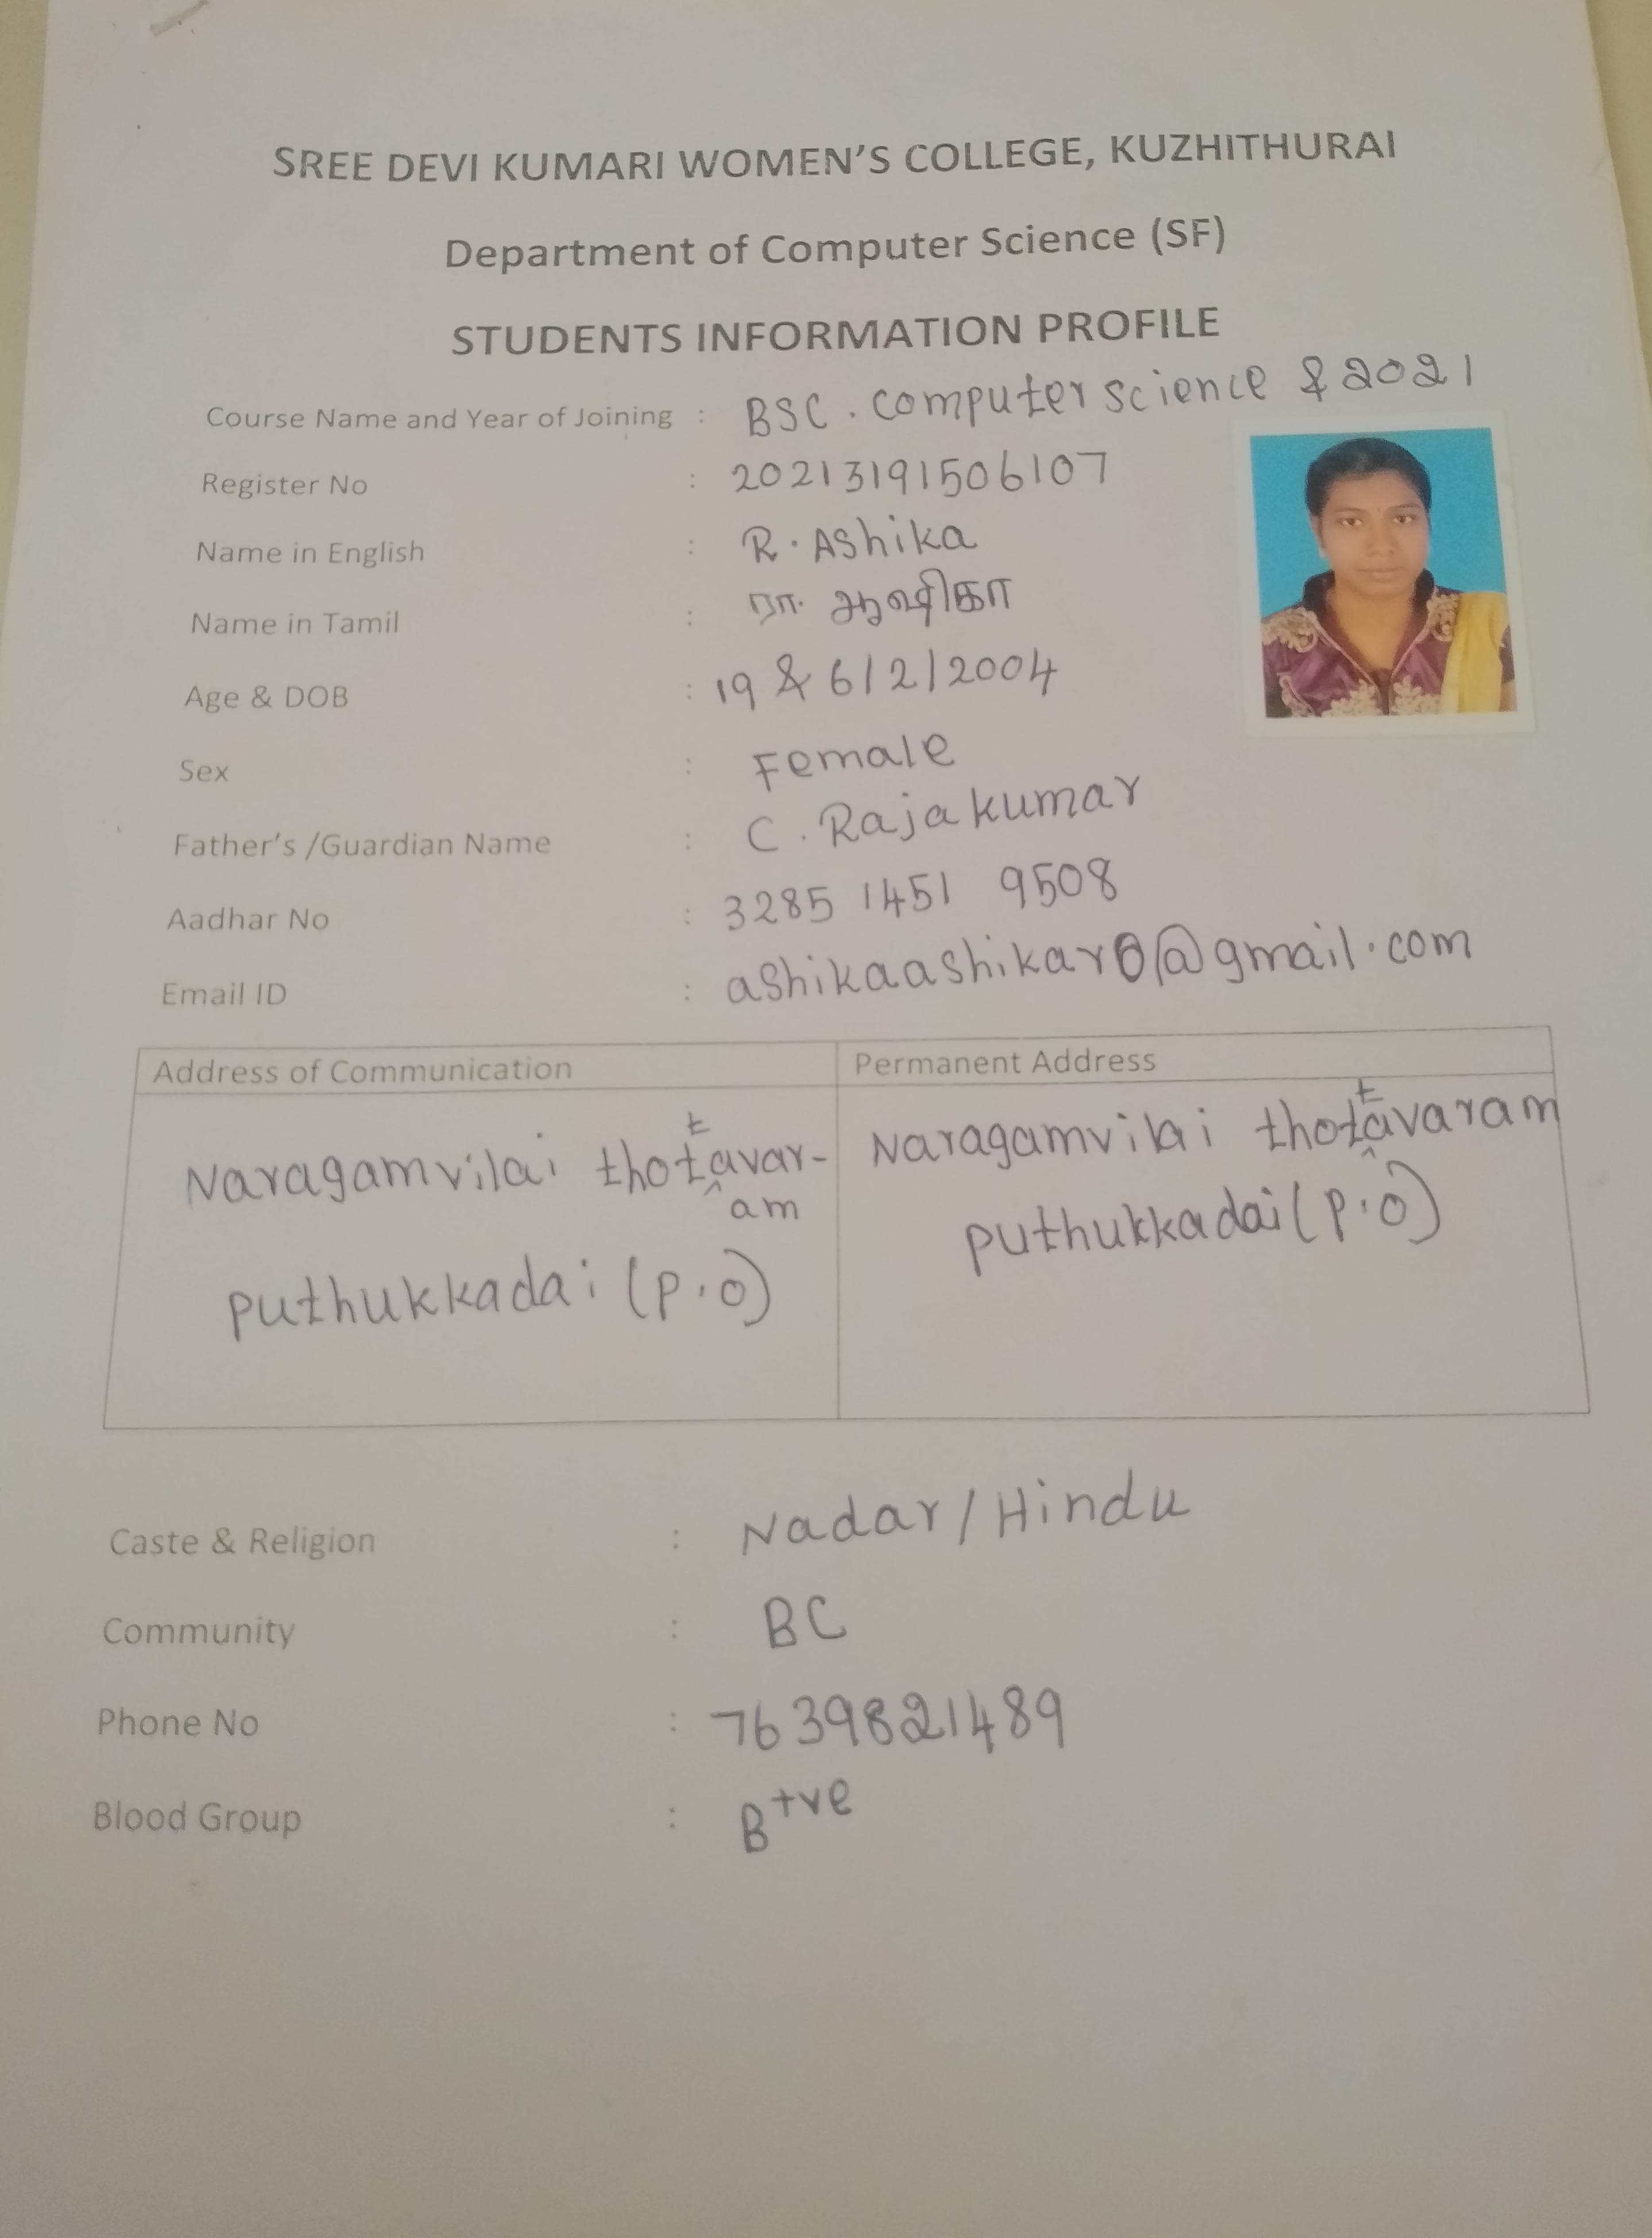 SREE DEVI KUMARI WOMEN'S COLLEGE, KUZHITHURAI
Department of Computer Science (SF)
STUDENTS INFORMATION PROFILE
Course Name and Year of Joining : BSC. Computer science & 2021
Register No : 20213191506107
Name in English : R. Ashika
Name in Tamil : ரா. ஆஷிகா
Age & DOB : 19 & 6/2/2004
Sex : Female
Father's /Guardian Name : C. Rajakumar
Aadhar No : 3285 1451 9508
Email ID : ashikaashikar0@gmail.com
Address of Communication
Naragamvilai thottavar-
am
puthukkadai (p.o)
Permanent Address
Naragamvilai thottavaram
puthukkadai (p.o)
Caste & Religion : Nadar/Hindu
Community : BC
Phone No : 7639821489
Blood Group : B+ve